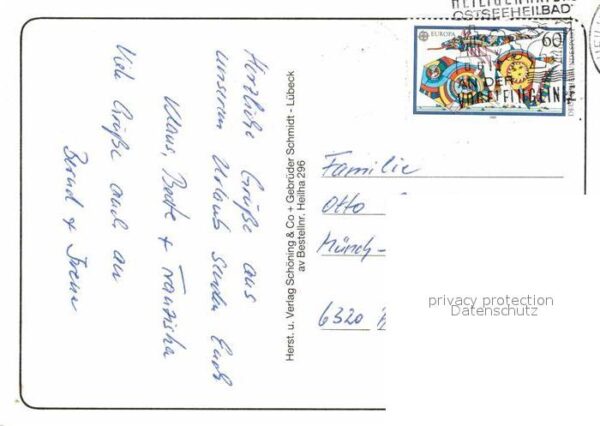 HEILIGENHAFEN
OSTSEEHEILBAD
EUROPA
60
AN DER
VOGELFLUGLINIE
Herzliche Grüße aus
unserem Urlaub senden Euch
Klaus, Beate + Franziska
Viele Grüße auch an
Bernd + Irene
Herst. u. Verlag Schöning & Co + Gebrüder Schmidt - Lübeck
av Bestellnr. Heilha 296
Familie
Otto
Münch-
6320
privacy protection
Datenschutz